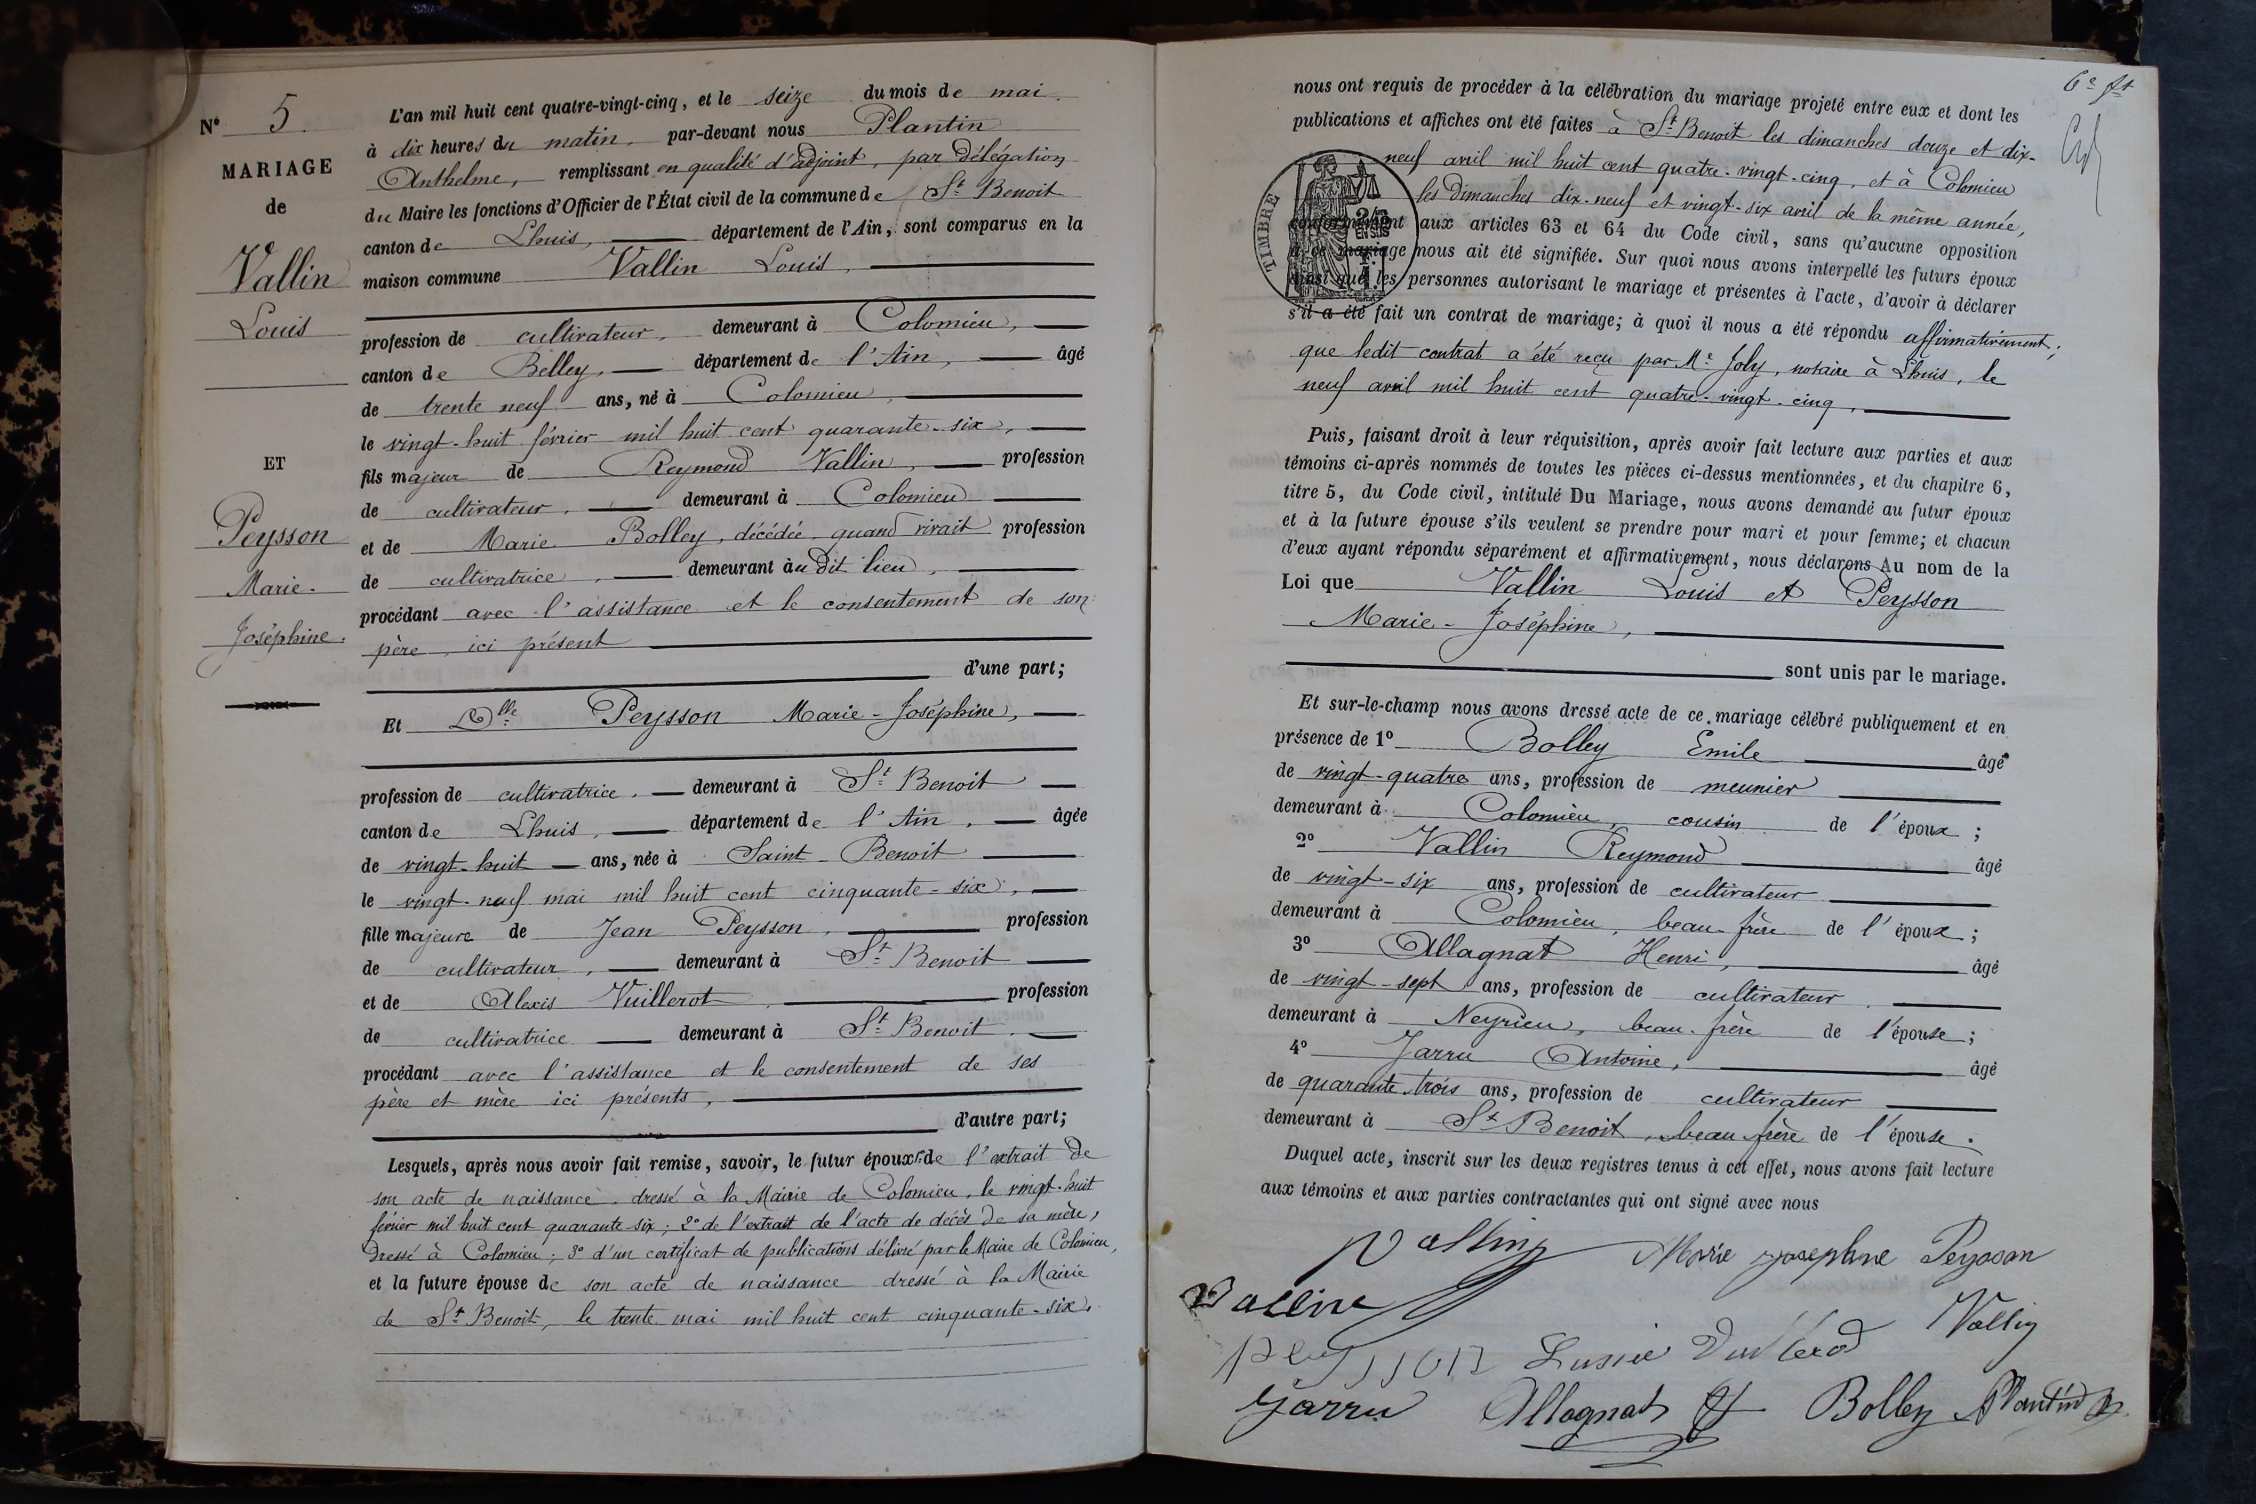 N° 5.
MARIAGE
de
Vallin
Louis
ET
Peysson
Marie-
Joséphine.
L'an mil huit cent quatre-vingt-cinq, et le seize du mois de mai
à dix heures du matin, par-devant nous Plantin
Anthelme, remplissant en qualité d'adjoint, par délégation
du Maire les fonctions d'Officier de l'État civil de la commune de St Benoit
canton de Lhuis, département de l'Ain, sont comparus en la
maison commune Vallin Louis,
profession de cultivateur, demeurant à Colomieu,
canton de Belley, département de l'Ain, âgé
de trente neuf ans, né à Colomieu,
le vingt-huit février mil huit cent quarante-six,
fils majeur de Reymond Vallin, profession
de cultivateur, demeurant à Colomieu
et de Marie Bolley, décédée, quand vivait profession
de cultivatrice, demeurant au dit lieu,
procédant avec l'assistance et le consentement de son
père, ici présent
d'une part;
Et Dlle Peysson Marie-Joséphine,
profession de cultivatrice, demeurant à St Benoit
canton de Lhuis, département de l'Ain, âgée
de vingt-huit ans, née à Saint-Benoit
le vingt-neuf mai mil huit cent cinquante-six,
fille majeure de Jean Peysson, profession
de cultivateur, demeurant à St Benoit
et de Alexis Vuillerot, profession
de cultivatrice demeurant à St Benoit,
procédant avec l'assistance et le consentement de ses
père et mère ici présents,
d'autre part;
Lesquels, après nous avoir fait remise, savoir, le futur époux 1° de l'extrait de
son acte de naissance, dressé à la Mairie de Colomieu, le vingt-huit
février mil huit cent quarante-six; 2° de l'extrait de l'acte de décès de sa mère,
dressé à Colomieu; 3° d'un certificat de publications délivré par le Maire de Colomieu,
et la future épouse de son acte de naissance dressé à la Mairie
de St Benoit, le trente mai mil huit cent cinquante-six.
nous ont requis de procéder à la célébration du mariage projeté entre eux et dont les
publications et affiches ont été faites à St Benoit les dimanches douze et dix-
neuf avril mil huit cent quatre-vingt-cinq, et à Colomieu
les dimanches dix-neuf et vingt-six avril de la même année,
TIMBRE
conformément aux articles 63 et 64 du Code civil, sans qu'aucune opposition
à ce mariage nous ait été signifiée. Sur quoi nous avons interpellé les futurs époux
ainsi que les personnes autorisant le mariage et présentes à l'acte, d'avoir à déclarer
s'il a été fait un contrat de mariage; à quoi il nous a été répondu affirmativement;
que ledit contrat a été reçu par Me Joly, notaire à Lhuis, le
neuf avril mil huit cent quatre-vingt-cinq,
Puis, faisant droit à leur réquisition, après avoir fait lecture aux parties et aux
témoins ci-après nommés de toutes les pièces ci-dessus mentionnées, et du chapitre 6,
titre 5, du Code civil, intitulé Du Mariage, nous avons demandé au futur époux
et à la future épouse s'ils veulent se prendre pour mari et pour femme; et chacun
d'eux ayant répondu séparément et affirmativement, nous déclarons Au nom de la
Loi que Vallin Louis et Peysson
Marie-Joséphine,
sont unis par le mariage.
Et sur-le-champ nous avons dressé acte de ce mariage célébré publiquement et en
présence de 1° Bolley Emile âgé
de vingt-quatre ans, profession de meunier
demeurant à Colomieu, cousin de l'époux;
2° Vallin Reymond âgé
de vingt-six ans, profession de cultivateur
demeurant à Colomieu, beau-frère de l'époux;
3° Allagnat Henri, âgé
de vingt-sept ans, profession de cultivateur
demeurant à Neyrieu, beau-frère de l'épouse;
4° Jarru Antoine, âgé
de quarante trois ans, profession de cultivateur
demeurant à St Benoit, beau-frère de l'épouse.
Duquel acte, inscrit sur les deux registres tenus à cet effet, nous avons fait lecture
aux témoins et aux parties contractantes qui ont signé avec nous
Vallin Marie josephine Peysson
Vallin Vallin
peysson
Jarru Allagnat Bolley Plantin